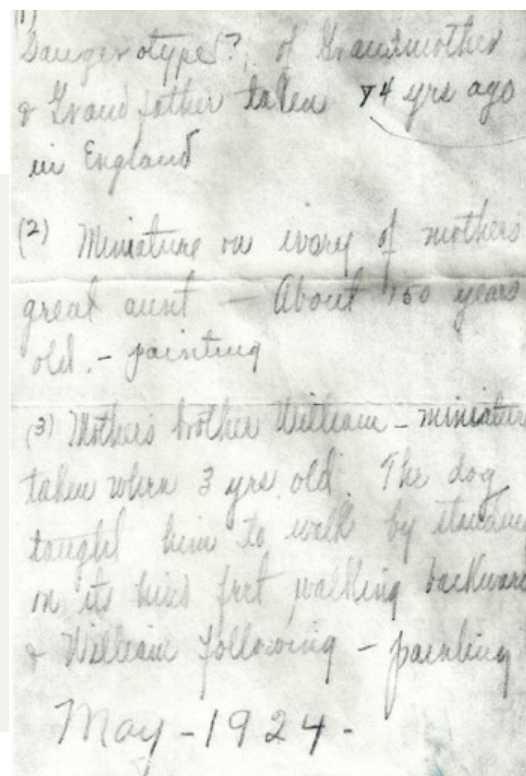 (1)
Daugerotype?, of Grandmother
& Grand father taken 74 yrs ago
in England
(2) Miniature on ivory of mothers
great aunt - About 150 years
old. - painting
(3) Mothers brother William - miniature
taken when 3 yrs. old. The dog
taught him to walk by standing
on its hind feet walking backward
& William following - painting
May - 1924 -